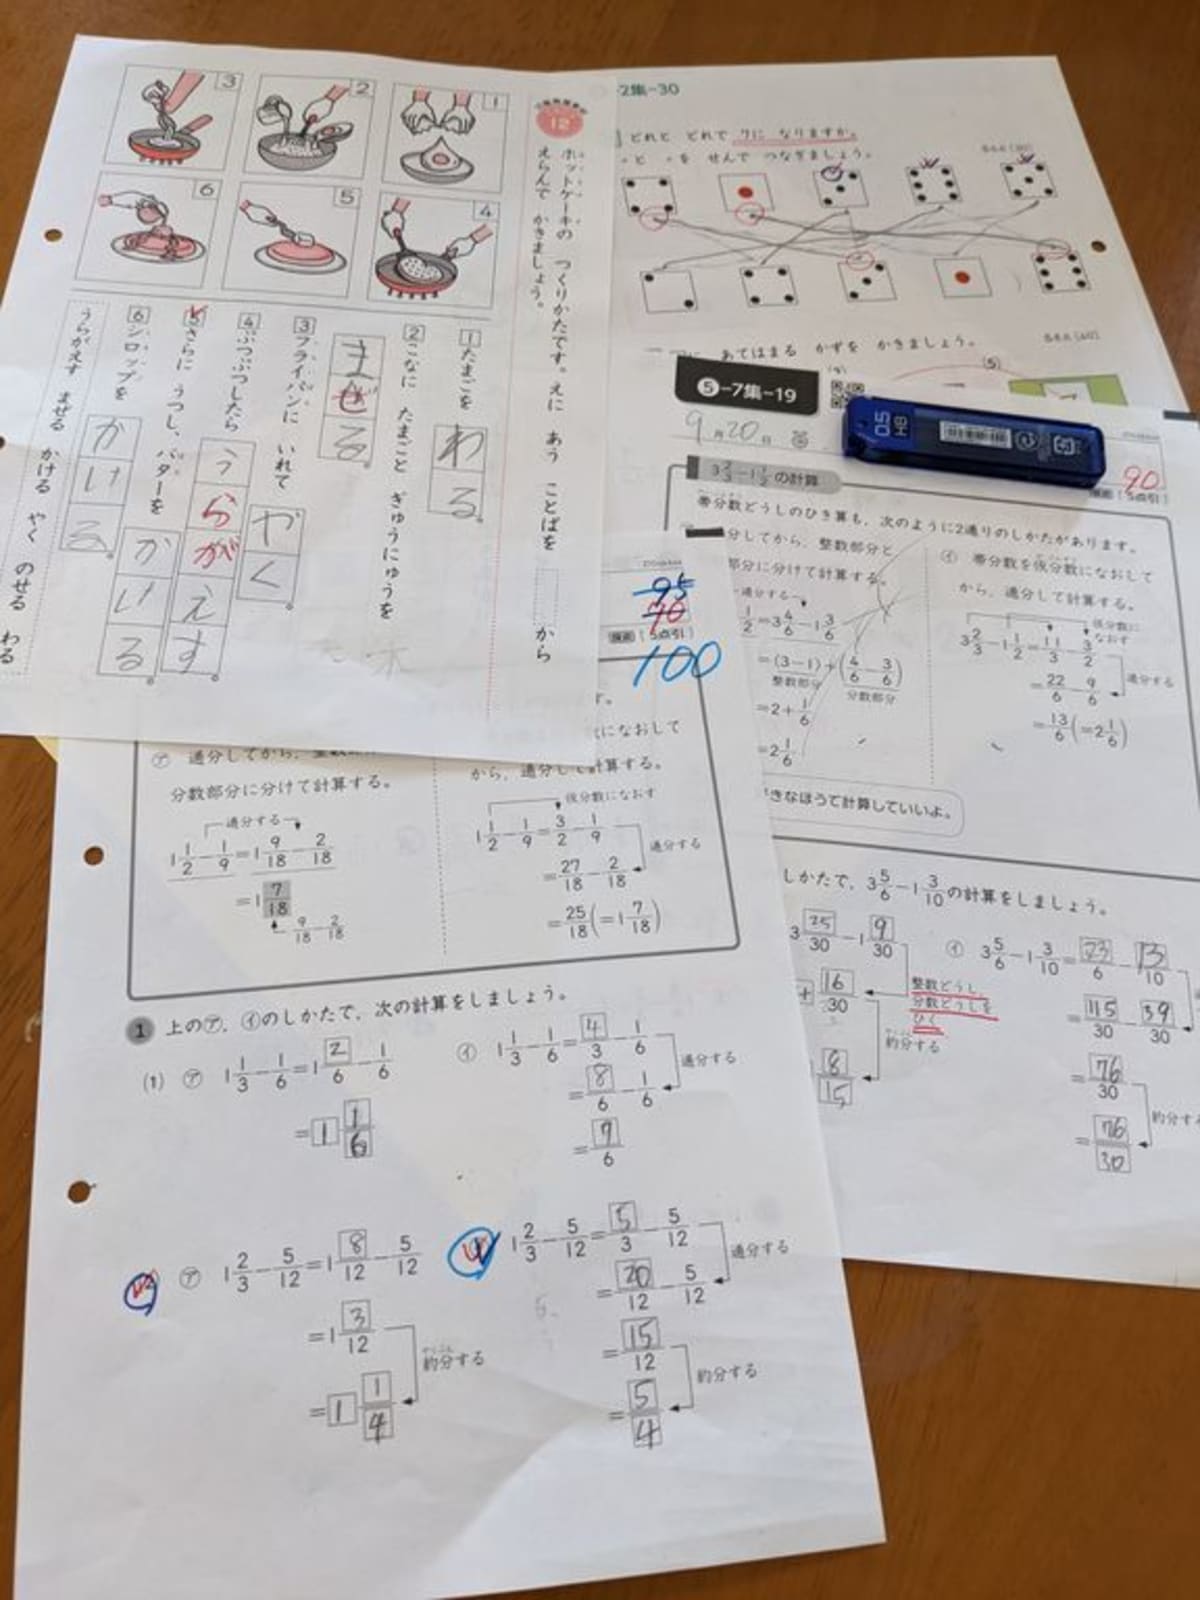 3
2
1
6
5
4
12
ホットケーキの つくりかたです。えに あう ことばを から
えらんで かきましょう。
1 たまごを わる。
2 こなに たまごと ぎゅうにゅうを
まぜる。
3 フライパンに いれて やく。
4 ぷつぷつしたら うらがえす。
5 さらに うつし、バターを かける。
6 シロップを かける。
うらがえす まぜる かける やく のせる わる
2集-30
どれと どれで 7に なりますか。
・と ・を せんで つなぎましょう。
あてはまる かずを かきましょう。
(5)
5-7集-19
9月20日
0.5
HB
90
(5点引)
3 2/3-1 1/2 の計算
帯分数どうしのひき算も、次のように2通りのしかたがあります。
分してから、整数部分と
部分に分けて計算する。
通分する
1/2=3 4/6-1 3/6
=(3-1)+(4/6-3/6)
整数部分 分数部分
=2+1/6
=2 1/6
㋑ 帯分数を仮分数になおして
から、通分して計算する。
仮分数に
なおす
3 2/3-1 1/2=11/3-3/2
通分する
=22/6-9/6
=13/6(=2 1/6)
きなほうで計算していいよ。
しかたで、3 5/6-1 3/10の計算をしましょう。
3 25/30-1 9/30
+ 16/30
整数どうし、
分数どうしを
ひく
約分する
8/15
㋑ 3 5/6-1 3/10=23/6-13/10
=115/30-39/30
=76/30
約分す
=76/30
95
90
(5点引)
100
す。
になおして
㋐ 通分してから、整
分数部分に分けて計算する。
通分する
1 1/2-1/9=1 9/18-2/18
=1 7/18
9/18-2/18
から、通分して計算する。
仮分数になおす
1 1/2-1/9=3/2-1/9
通分する
=27/18-2/18
=25/18(=1 7/18)
1 上の㋐、㋑のしかたで、次の計算をしましょう。
(1) ㋐ 1 1/3-1/6=1 2/6-1/6
=1 1/6
㋑ 1 1/3-1/6=4/3-1/6
通分する
=8/6-1/6
=7/6
㋐ 1 2/3-5/12=1 8/12-5/12
=1 3/12
約分する
=1 1/4
1 2/3-5/12=5/3-5/12
通分する
=20/12-5/12
=15/12
約分する
=5/4